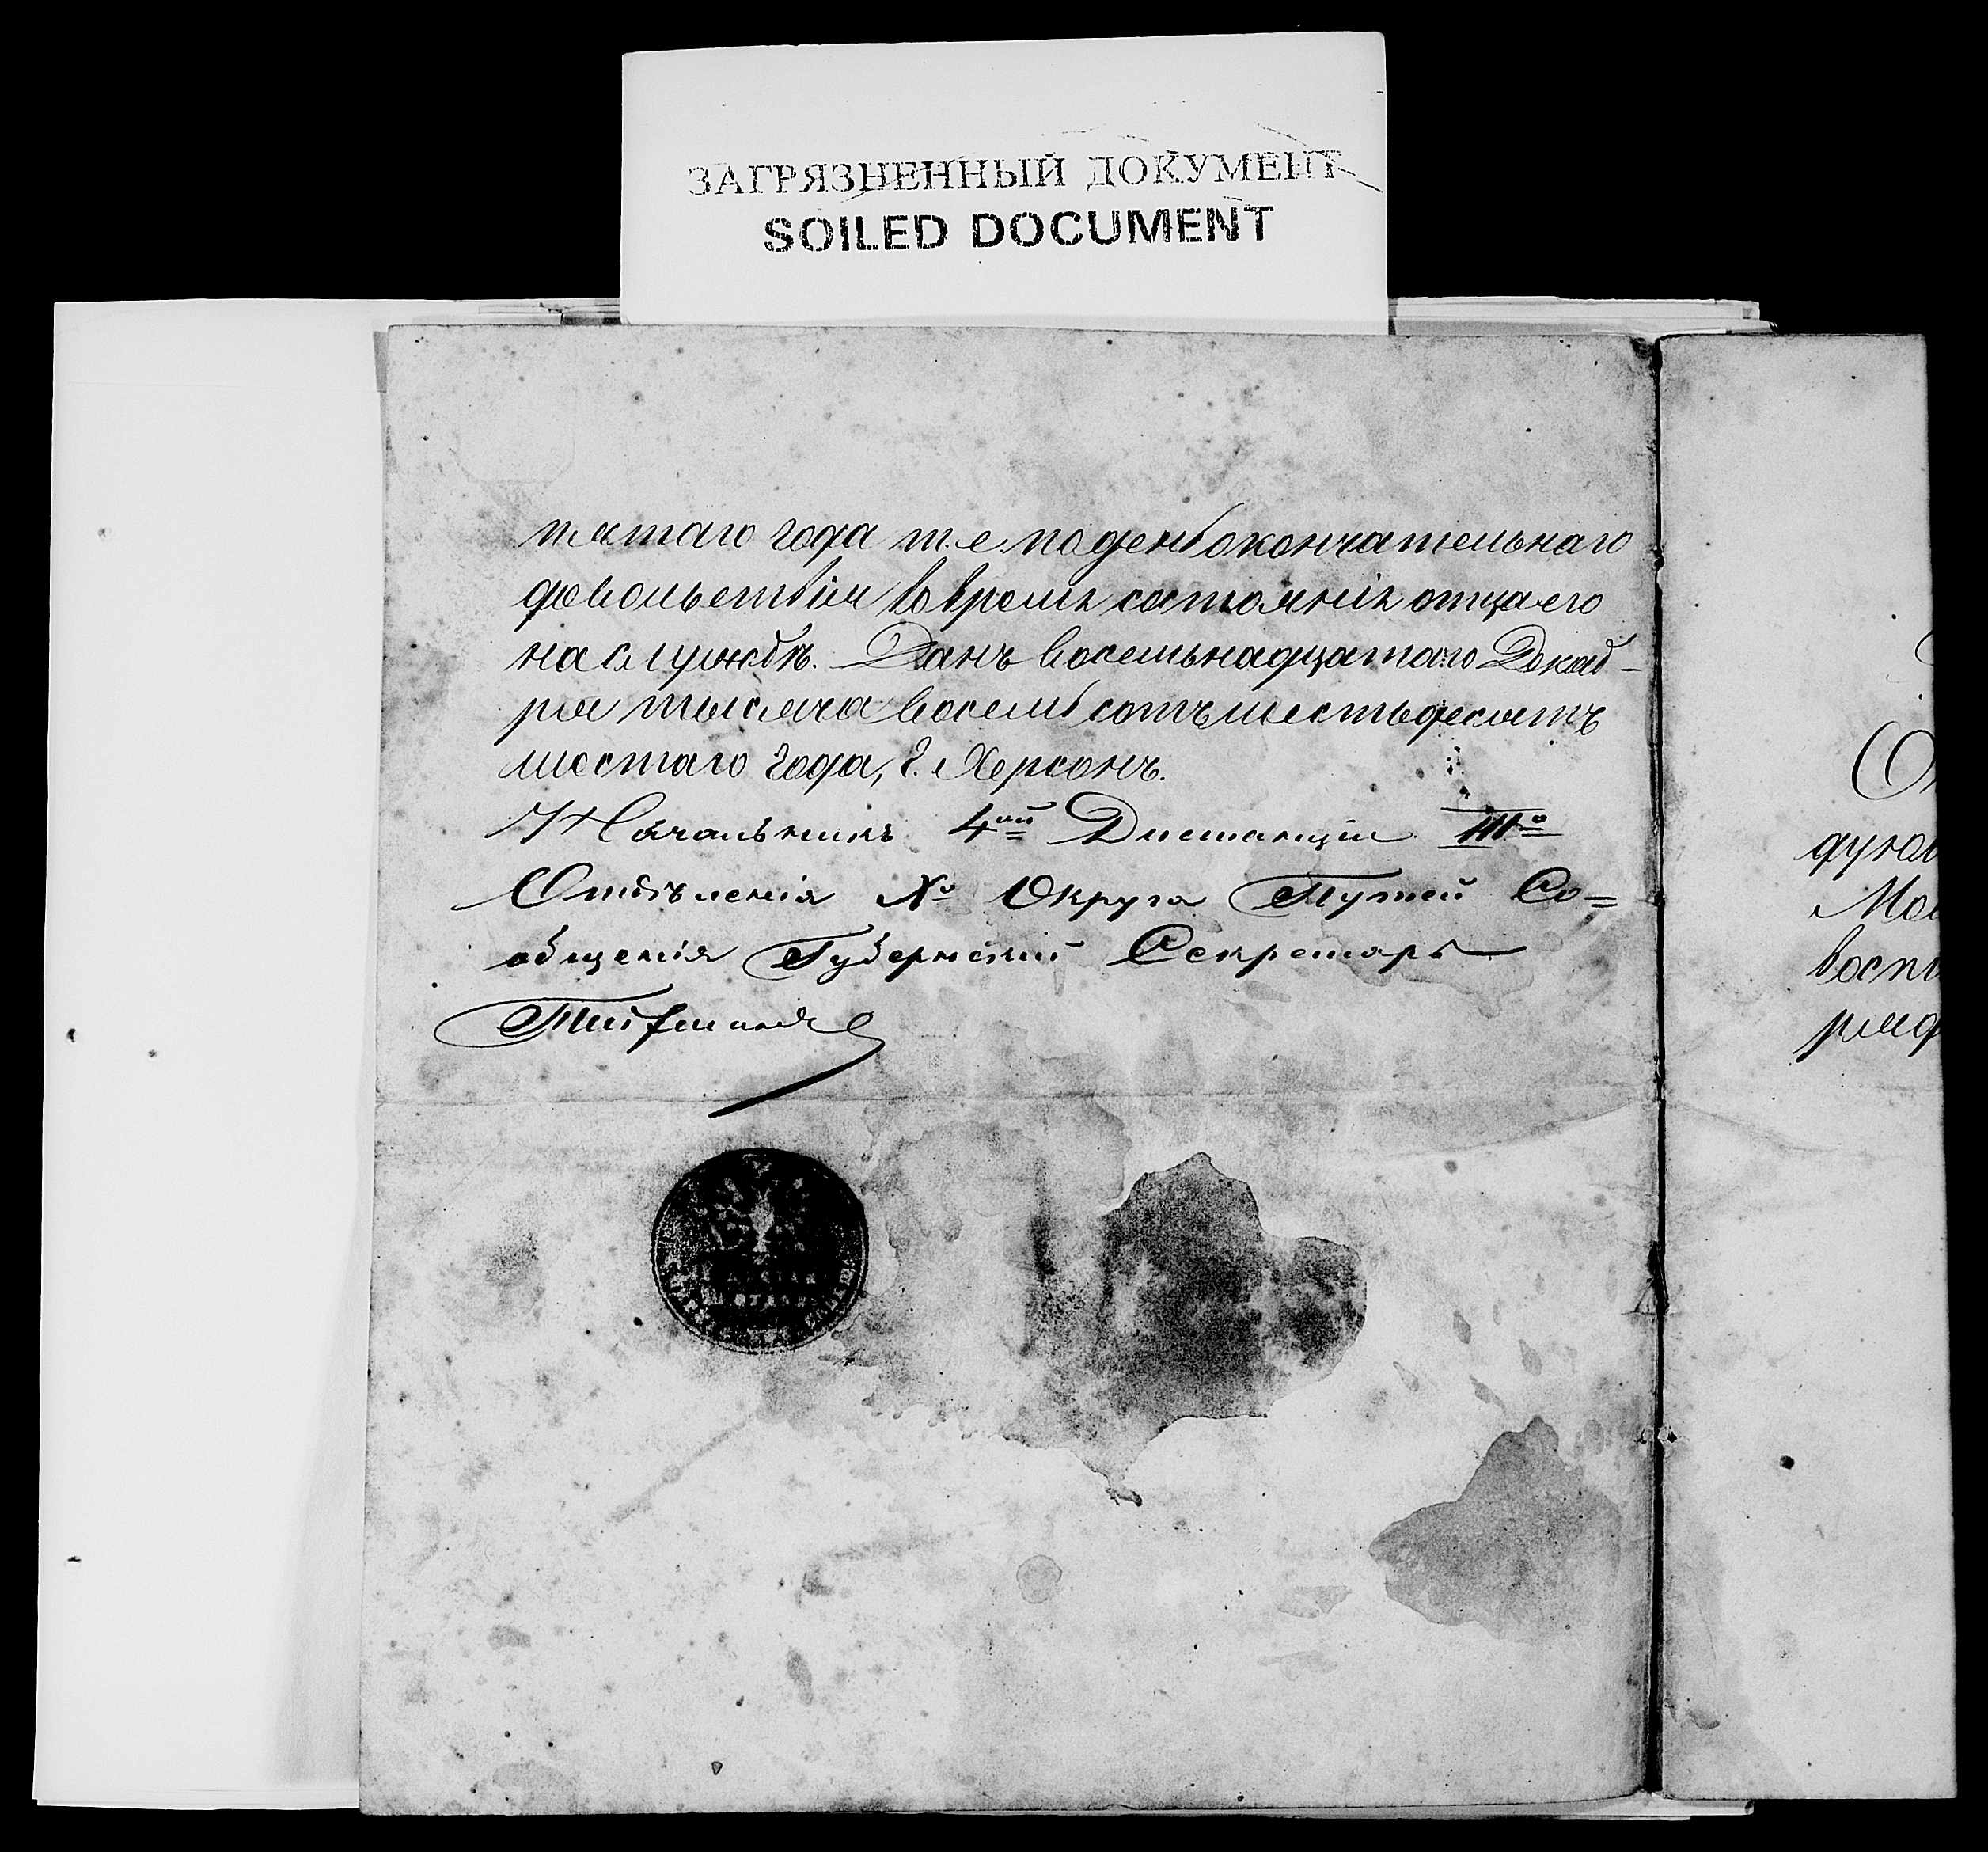 ЗАГРЯЗНЕННЫЙ ДОКУМЕНТ
SOILED DOCUMENT
пятаго года т.е. по день окончательнаго
довольствія во время состоянія отца его
на службѣ. Данъ восемьнадцатаго Декаб-
ря тысяча восемьсотъ шестьдесятъ
шестаго года, г. Херсонъ.
Начальникъ 4ой Дистанціи III го
Отдѣленія X го Округа Путей Со=
общенія Губернскій Секретарь
дую
Мо
восп
ряд